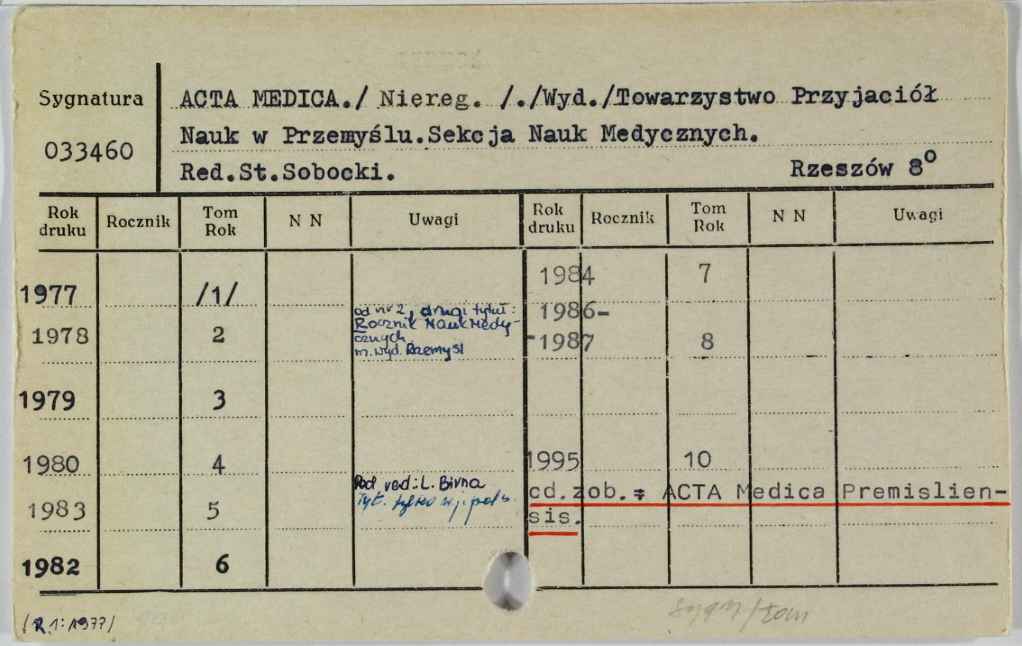 Sygnatura
033460
ACTA MEDICA./ Niereg. /./Wyd./Towarzystwo Przyjaciół
Nauk w Przemyślu.Sekcja Nauk Medycznych.
Red.St.Sobocki. Rzeszów 8°
Rok druku Rocznik Tom Rok N N Uwagi Rok druku Rocznik Tom Rok N N Uwagi
1977 /1/
1978 2 od nr 2, drugi tytuł:
Rocznik Nauk Medy-
cznych
m. wyd. Przemyśl
1979 3
1980 4
1983 5 Pod red: L. Birna
Tyt. tylko w j. pols.
1982 6
1984 7
1986-
-1987 8
1995 10
cd.zob.: ACTA Medica Premislien-
sis.
/R.1:1977/
sygn/tom